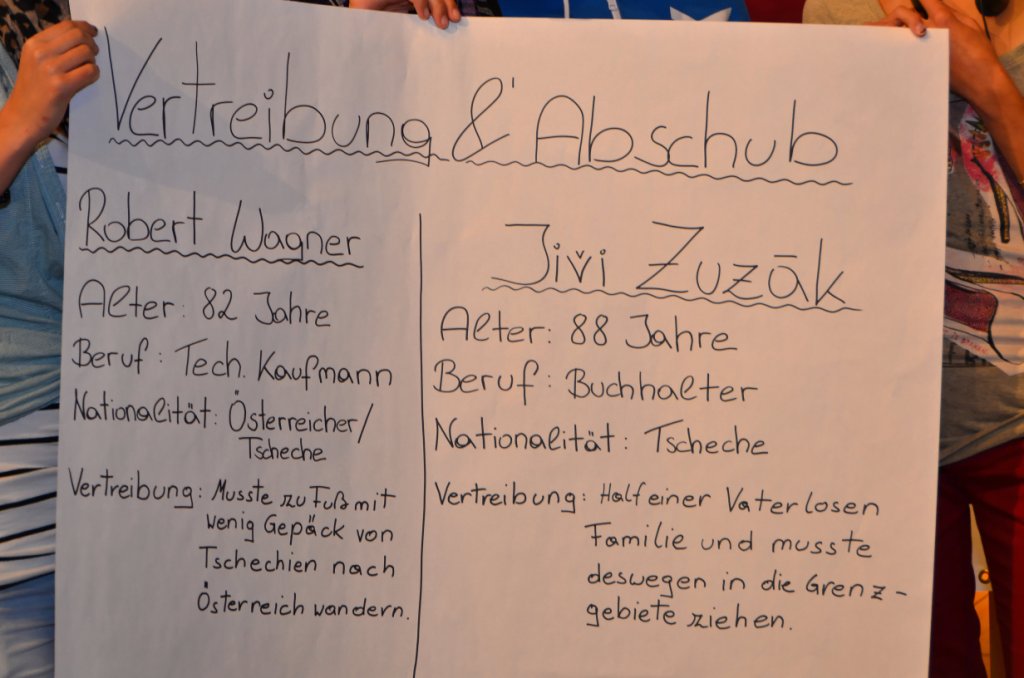 Vertreibung & Abschub
Robert Wagner
Alter: 82 Jahre
Beruf: Tech. Kaufmann
Nationalität: Österreicher/
Tscheche
Vertreibung: Musste zu Fuß mit
wenig Gepäck von
Tschechien nach
Österreich wandern.
Jiři Zuzāk
Alter: 88 Jahre
Beruf: Buchhalter
Nationalität: Tscheche
Vertreibung: Half einer Vaterlosen
Familie und musste
deswegen in die Grenz-
gebiete ziehen.